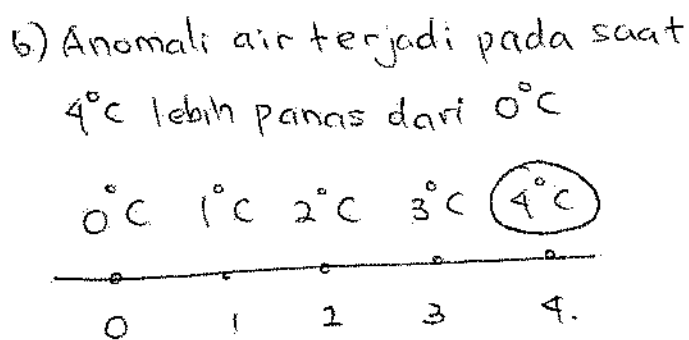 6) Anomali air terjadi pada saat
4°C lebih panas dari 0°C
0°C 1°C 2°C 3°C 4°C
0 1 2 3 4.